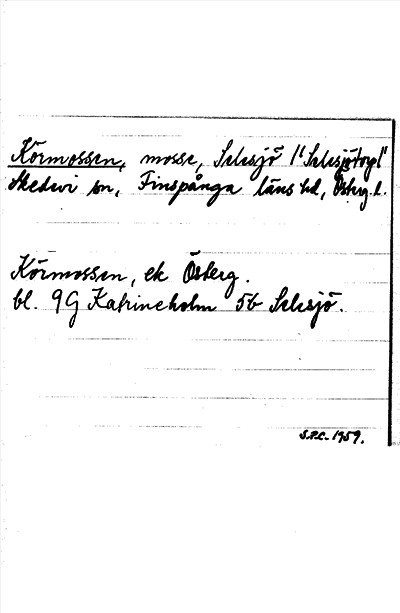 Körmossen, mosse, Selesjö 1 "Selesjötorp"
Skedevi sn, Finspånga läns hd, Österg. l.
Körmossen, ek Österg.
bl. 9G Katrineholm 5b Selesjö.
S.P.C. 1959.